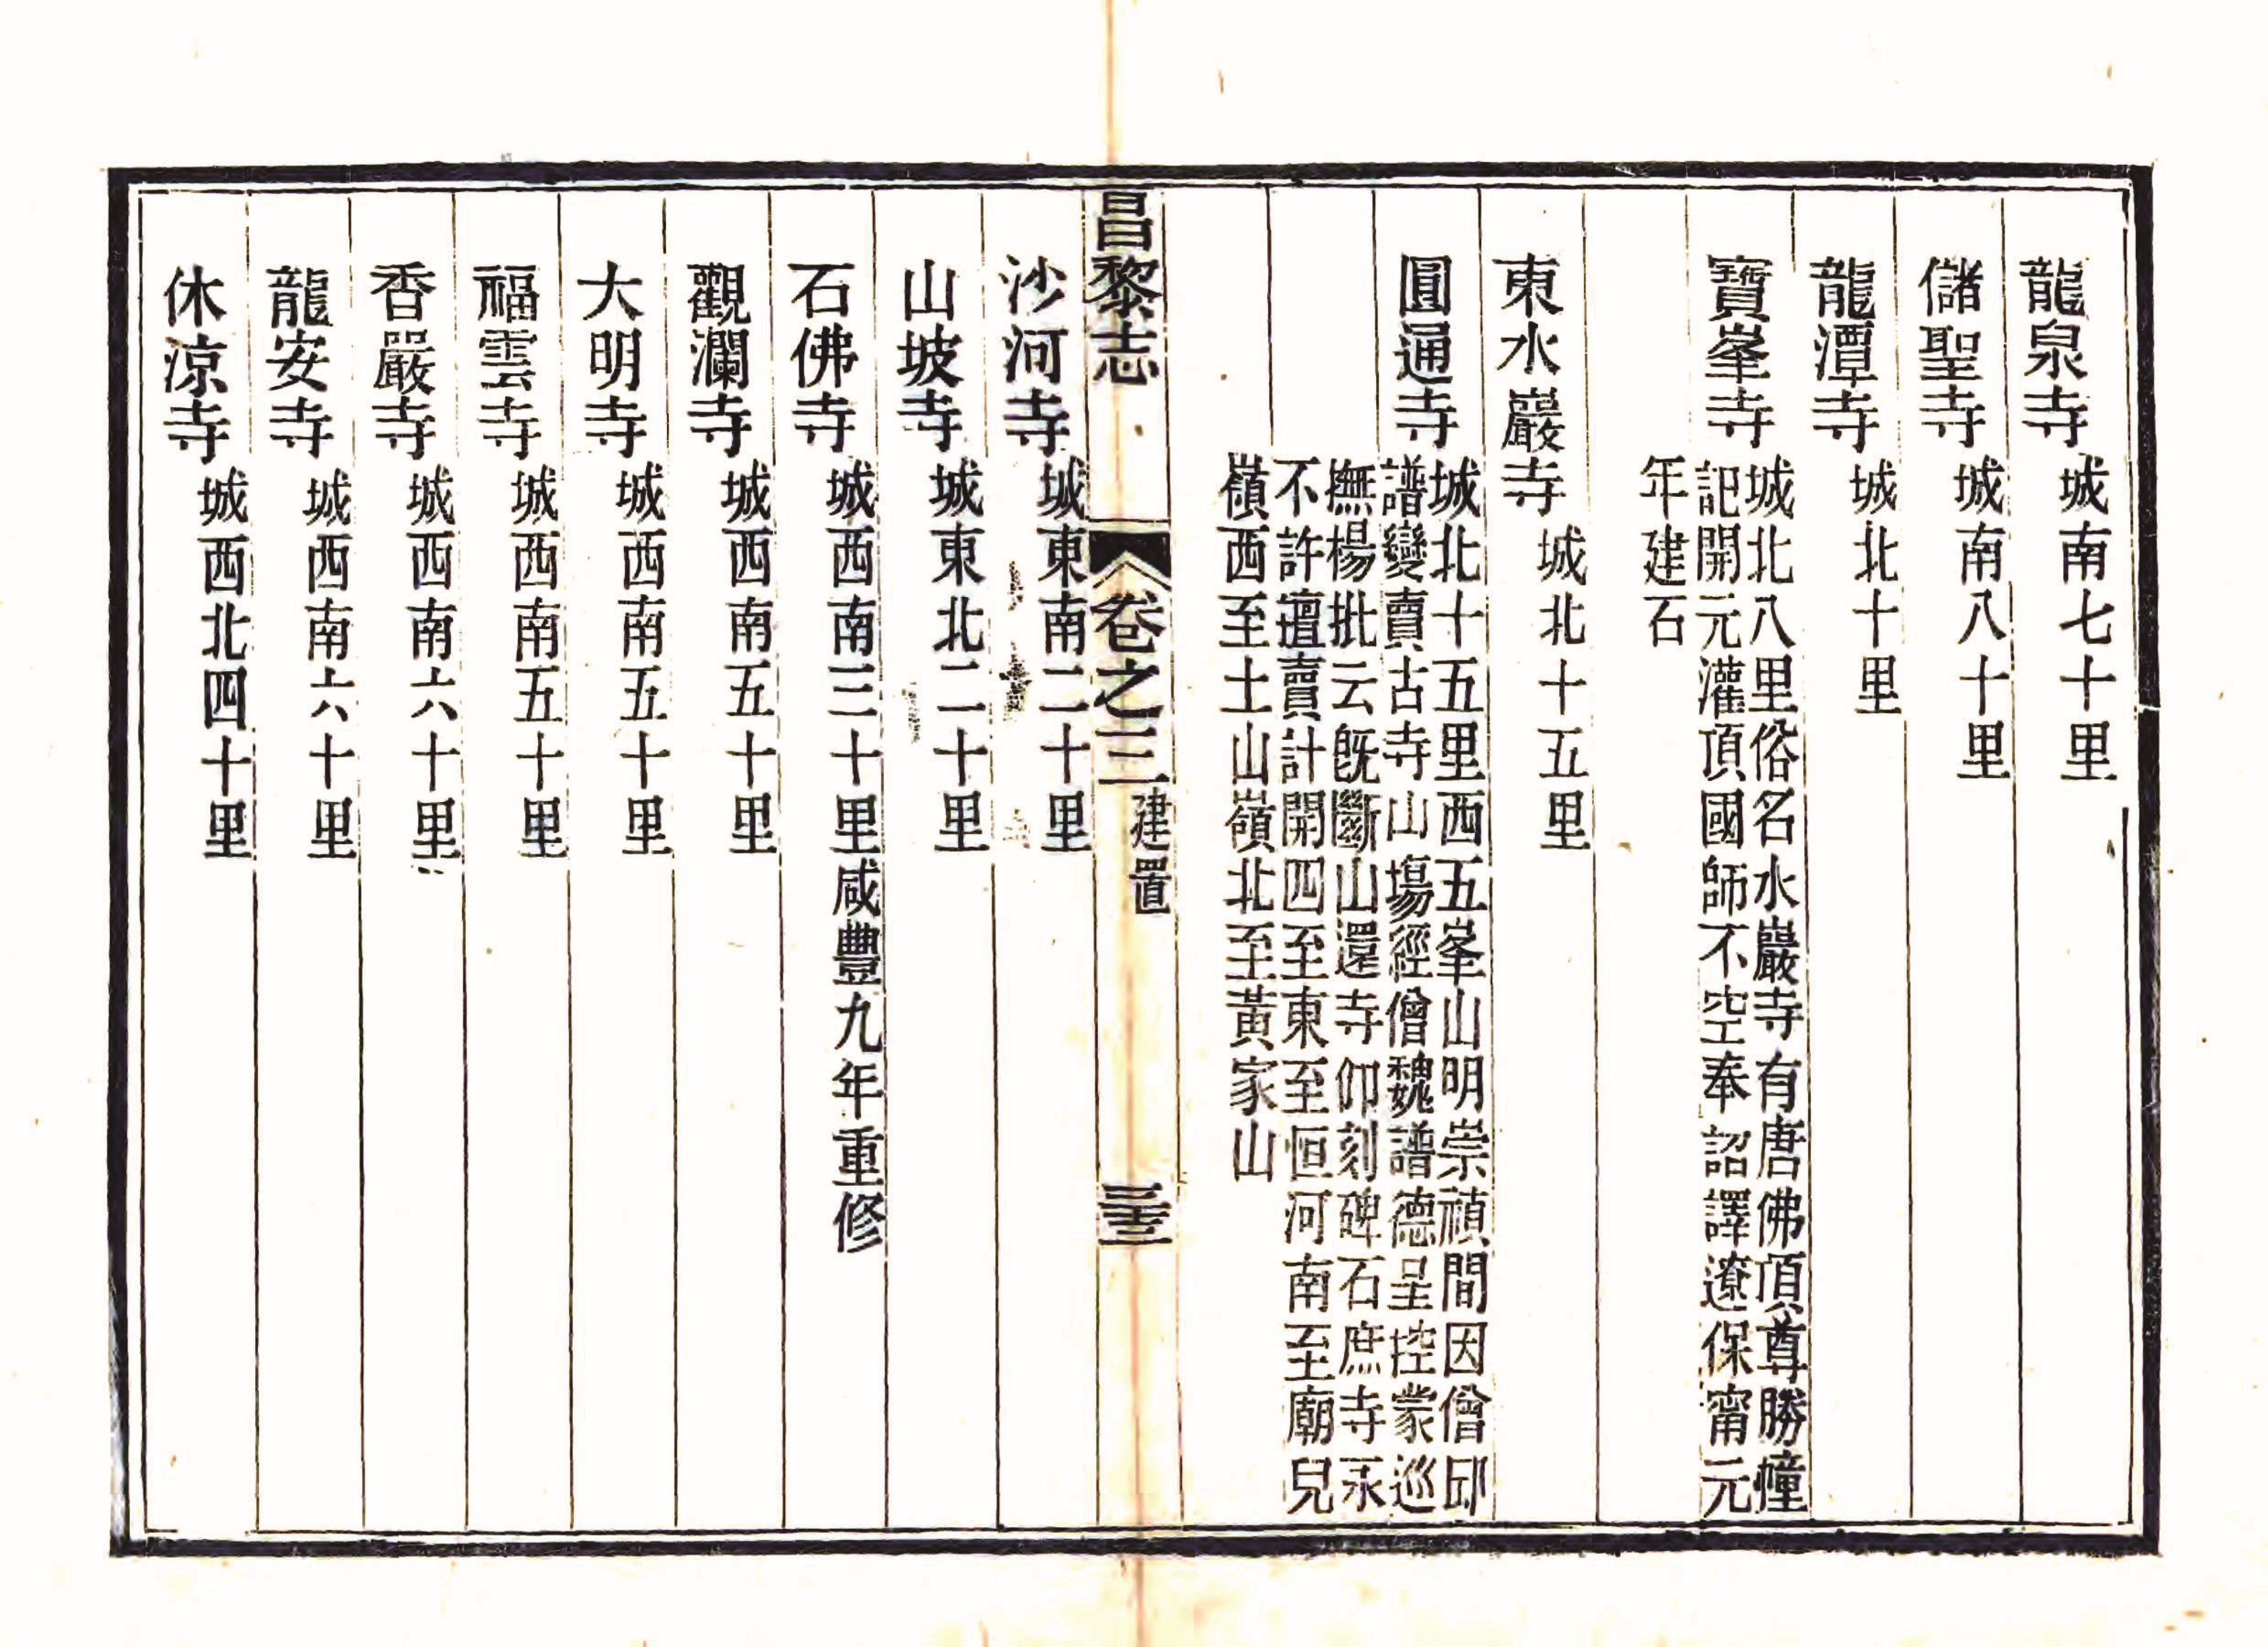 龍泉寺城南七十里
儲聖寺城南八十里
龍潭寺城北十里
寶峯寺城北八里俗名水巖寺有唐佛頂尊勝幢
記開元灌頂國師不空奉詔譯遼保甯元
年建石
東水巖寺城北十五里
圓通寺城北十五里西五峯山明崇禎間因僧邱
譜變賣古寺山塲經僧魏譜德呈控蒙巡
撫楊批云旣斷山還寺仰刻碑石庶寺永
不許擅賣計開四至東至恒河南至廟兒
嶺西至土山嶺北至黃家山
昌黎志
卷之三建置
三十三
沙河寺城東南二十里
山坡寺城東北二十里
石佛寺城西南三十里咸豐九年重修
觀瀾寺城西南五十里
大明寺城西南五十里
福雲寺城西南五十里
香嚴寺城西南六十里
龍安寺城西南六十里
休凉寺城西北四十里